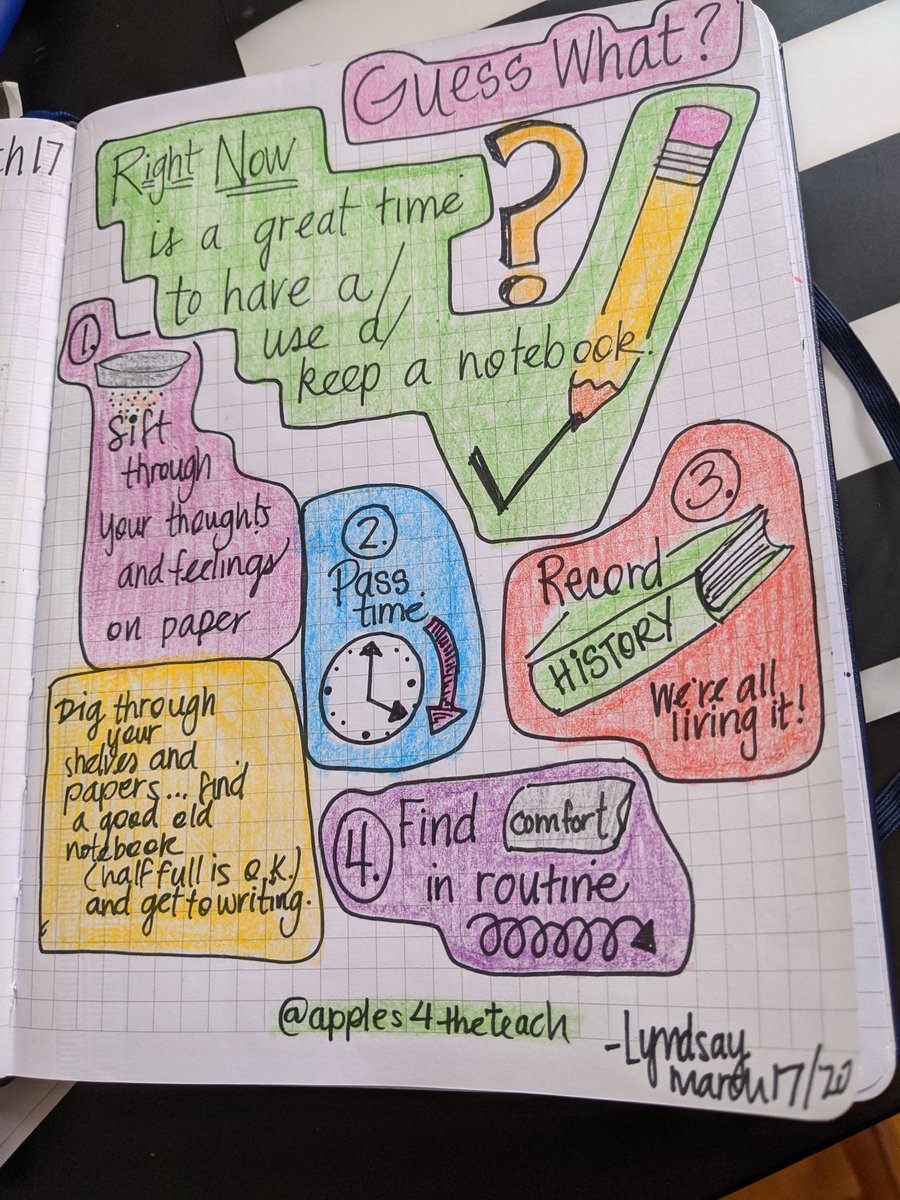 th 17
Guess What?
Right Now
is a great time
to have a/
use a/
keep a notebook.
?
1.
Sift
through
your thoughts
and feelings
on paper
2.
Pass
time
3.
Record
HISTORY
We're all
living it!
Dig through
your
shelves and
papers... find
a good old
notebook
(half full is O.K.)
and get to writing.
4.
Find comfort
in routine
@apples4theteach
-Lyndsay
march 17/20